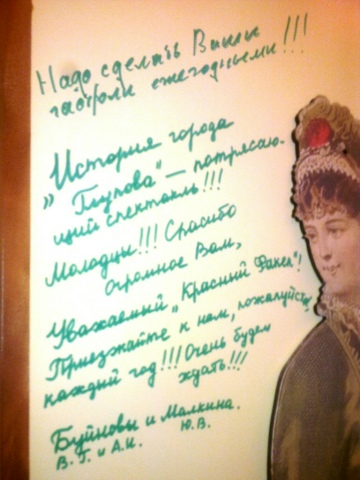 Надо сделать Ваши
гастроли ежегодными!!!
История города
„Глупова“ — потрясаю-
щий спектакль!!!
Молодцы!!! Спасибо
огромное Вам,
Уважаемый „Красный Факел“!
Приезжайте к нам, пожалуйста
каждый год!!! Очень будем
ждать!!!
Буйновы и Малкина.
В.Г. и А.И. Ю.В.